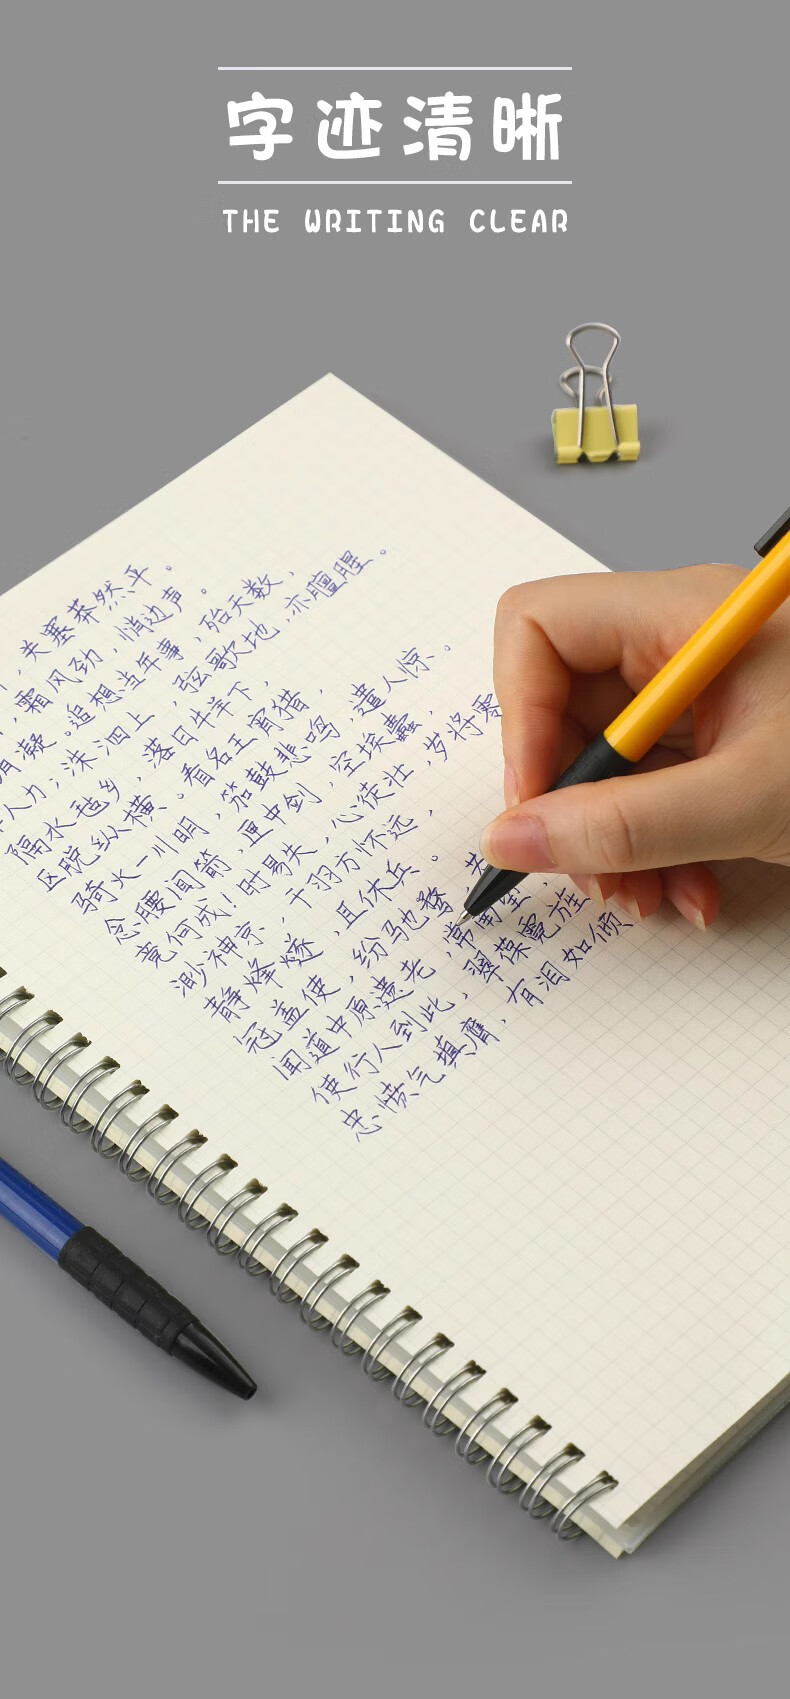 字迹清晰
THE WRITING CLEAR
，关塞莽然平。
，霜风劲，悄边声。
凝。追想当年事，殆天数，
人力；洙泗上，弦歌地，亦膻腥。
隔水毡乡，落日牛羊下，
区脱纵横。看名王宵猎，
骑火一川明，笳鼓悲鸣，遣人惊。
念腰间箭，匣中剑，空埃蠹，
竟何成！时易失，心徒壮，岁将零
渺神京，干羽方怀远，
静烽燧，且休兵。
冠盖使，纷驰骛，
闻道中原遗老，常南望，
使行人到此，翠葆霓旌
忠愤气填膺，有泪如倾